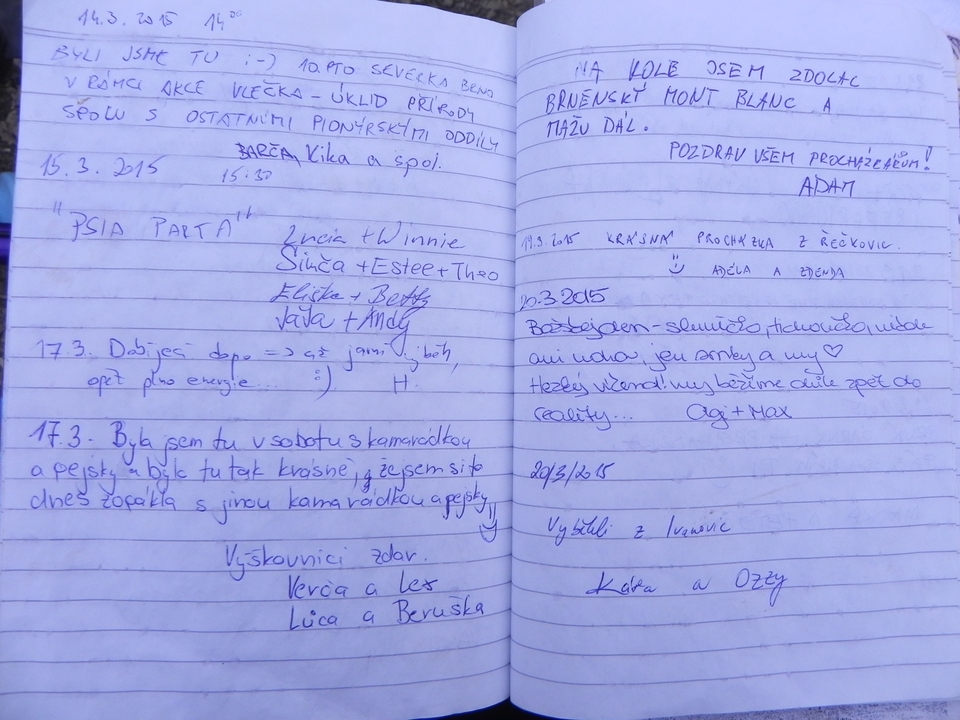 14.3. 2015 14⁰⁰
BYLI JSME TU :-) 10. PTO SEVERKA BRNO
V RÁMCI AKCE VLEČKA - ÚKLID PŘÍRODY
SPOLU S OSTATNÍMI PIONÝRSKÝMI ODDÍLY
BARČA, Kika a spol.
15.3. 2015 15:30
"PSIA PARTA" Lucia + Winnie
Simča + Estee + Theo
Eliška + Betty
Váva + Andy
17.3. Dobíjecí dopo => až jarní výběh,
opět plno energie... :) H.
17.3. Byla jsem tu v sobotu s kamarádkou
a pejsky a bylo tu tak krásně, že jsem si to
dnes zopákla s jinou kamarádkou a pejsky
Výškovnici zdar.
Verča a Lex
Lůca a Beruška
NA KOLE JSEM ZDOLAL
BRNĚNSKÝ MONT BLANC A
MAŽU DÁL.
POZDRAV VŠEM PROCHÁZKÁŘŮM!
ADAM
19.3. 2015 KRÁSNÁ PROCHÁZKA Z ŘEČKOVIC.
ADÉLA A ZDENDA
20.3.2015
- sluníčko, tichoučko, nikde
ani noha, jen srnky a my ♡
Hezký víkend! my běžíme chvíle zpět do
reality... Agi + Max
20/3/2015
Vyběhli z Ivanovic
Káťa a Ozzy